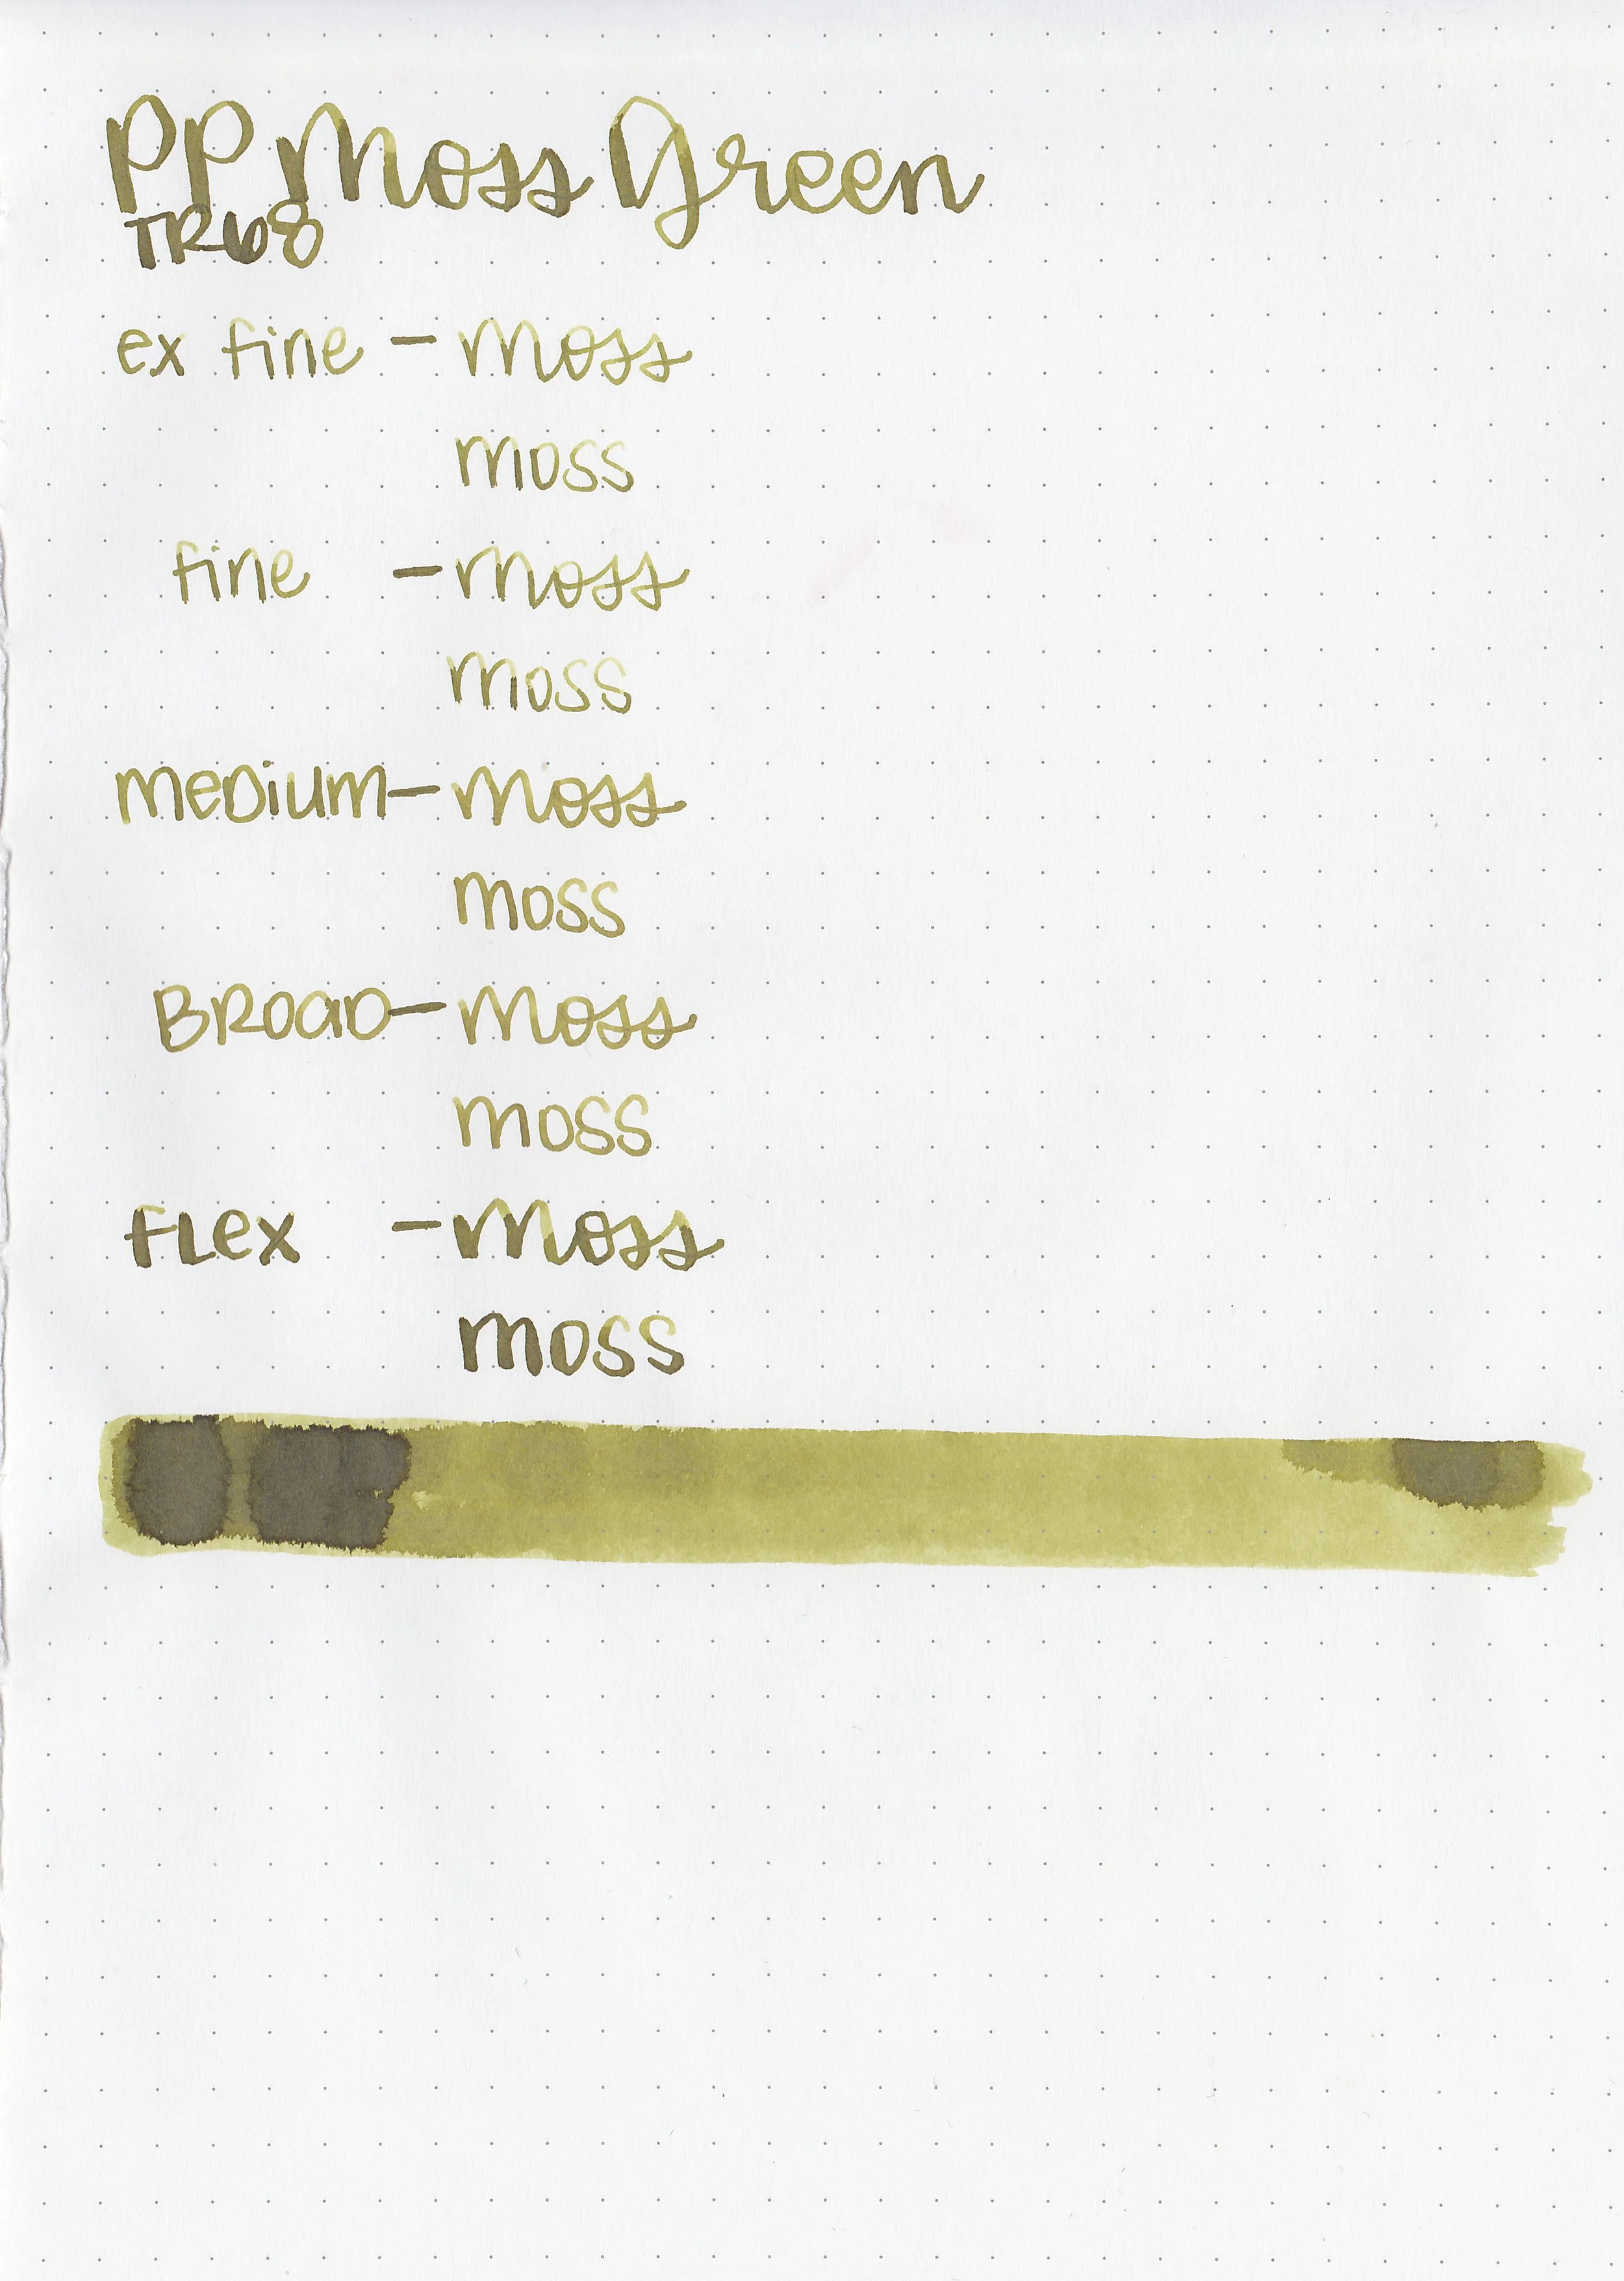 PP Moss Green
TR68
ex fine - moss
moss
fine - moss
moss
meDium - moss
moss
BROAD - moss
moss
FLex - moss
moss